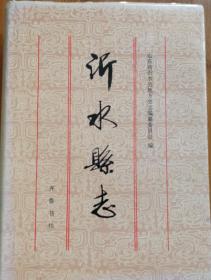 沂水縣志
山东省沂水县地方史志编纂委员会 编
齐鲁书社